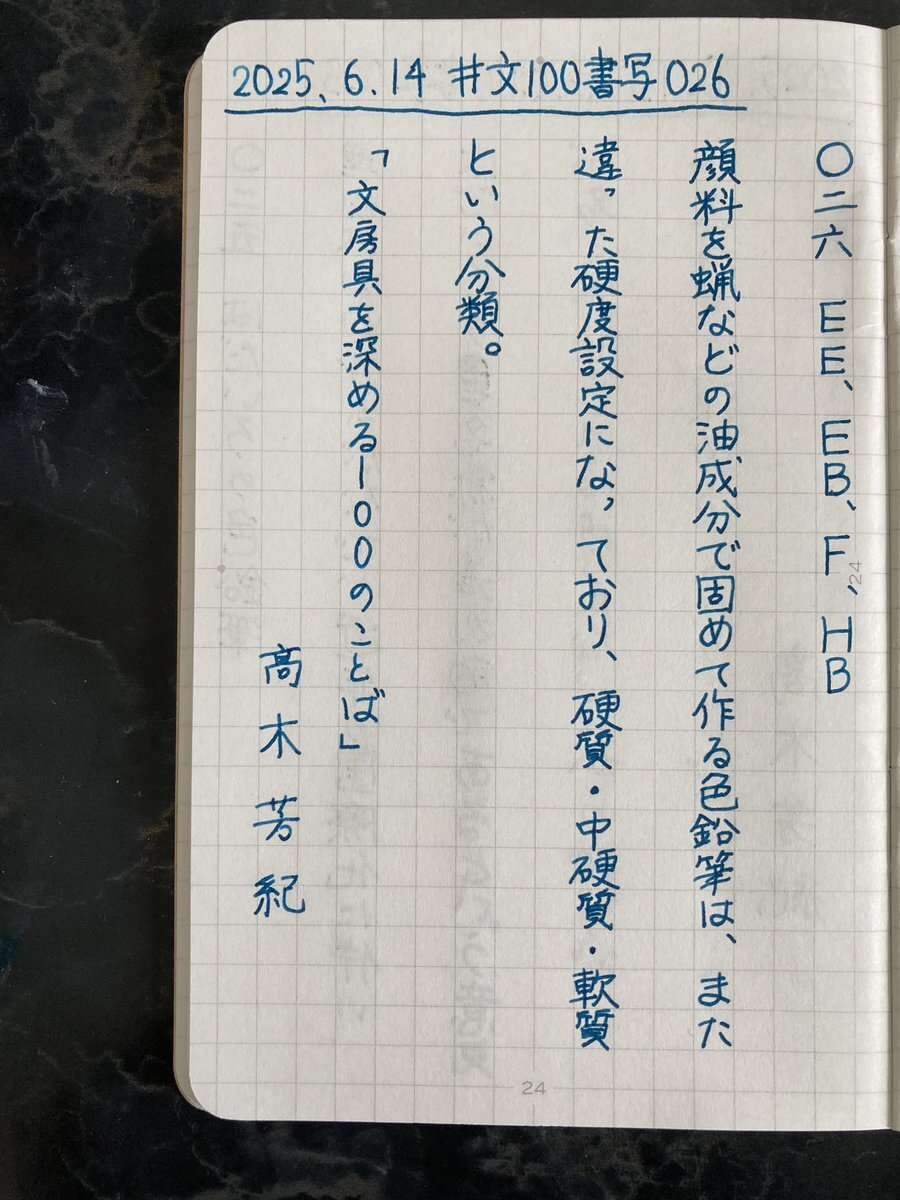 2025.6.14 #文100書写026
〇二六 EE、EB、F、HB
顔料を蝋などの油成分で固めて作る色鉛筆は、また
違った硬度設定になっており、硬質・中硬質・軟質
という分類。
「文房具を深める100のことば」
高木芳紀
24
24